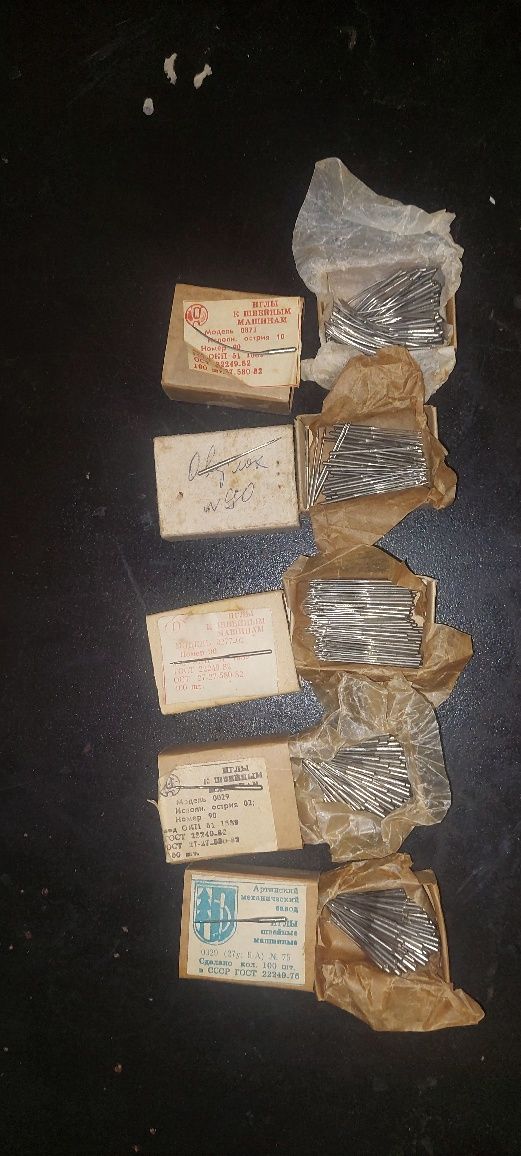 ИГЛЫ
К ШВЕЙНЫМ
МАШИНАМ
Модель 0871
Исполн. острия 10
Номер 90
ОКП 51
22249.82
100 шт. 27.580-82
№90
ИГЛЫ
К ШВЕЙНЫМ
МАШИНАМ
Номер 90
ГОСТ 22249.82
ОСТ 27-27-580-82
100 шт.
ИГЛЫ
К ШВЕЙНЫМ
Модель 0029
Исполн. острия 02;
Номер 90
код ОКП 51 1589
ГОСТ 22249.82
ОСТ 27-27-580-82
100 шт.
Артинский
механический
завод
ИГЛЫ
швейные
машинные
0320 № 75
Сделано кол. 100 шт.
в СССР ГОСТ 22249.76